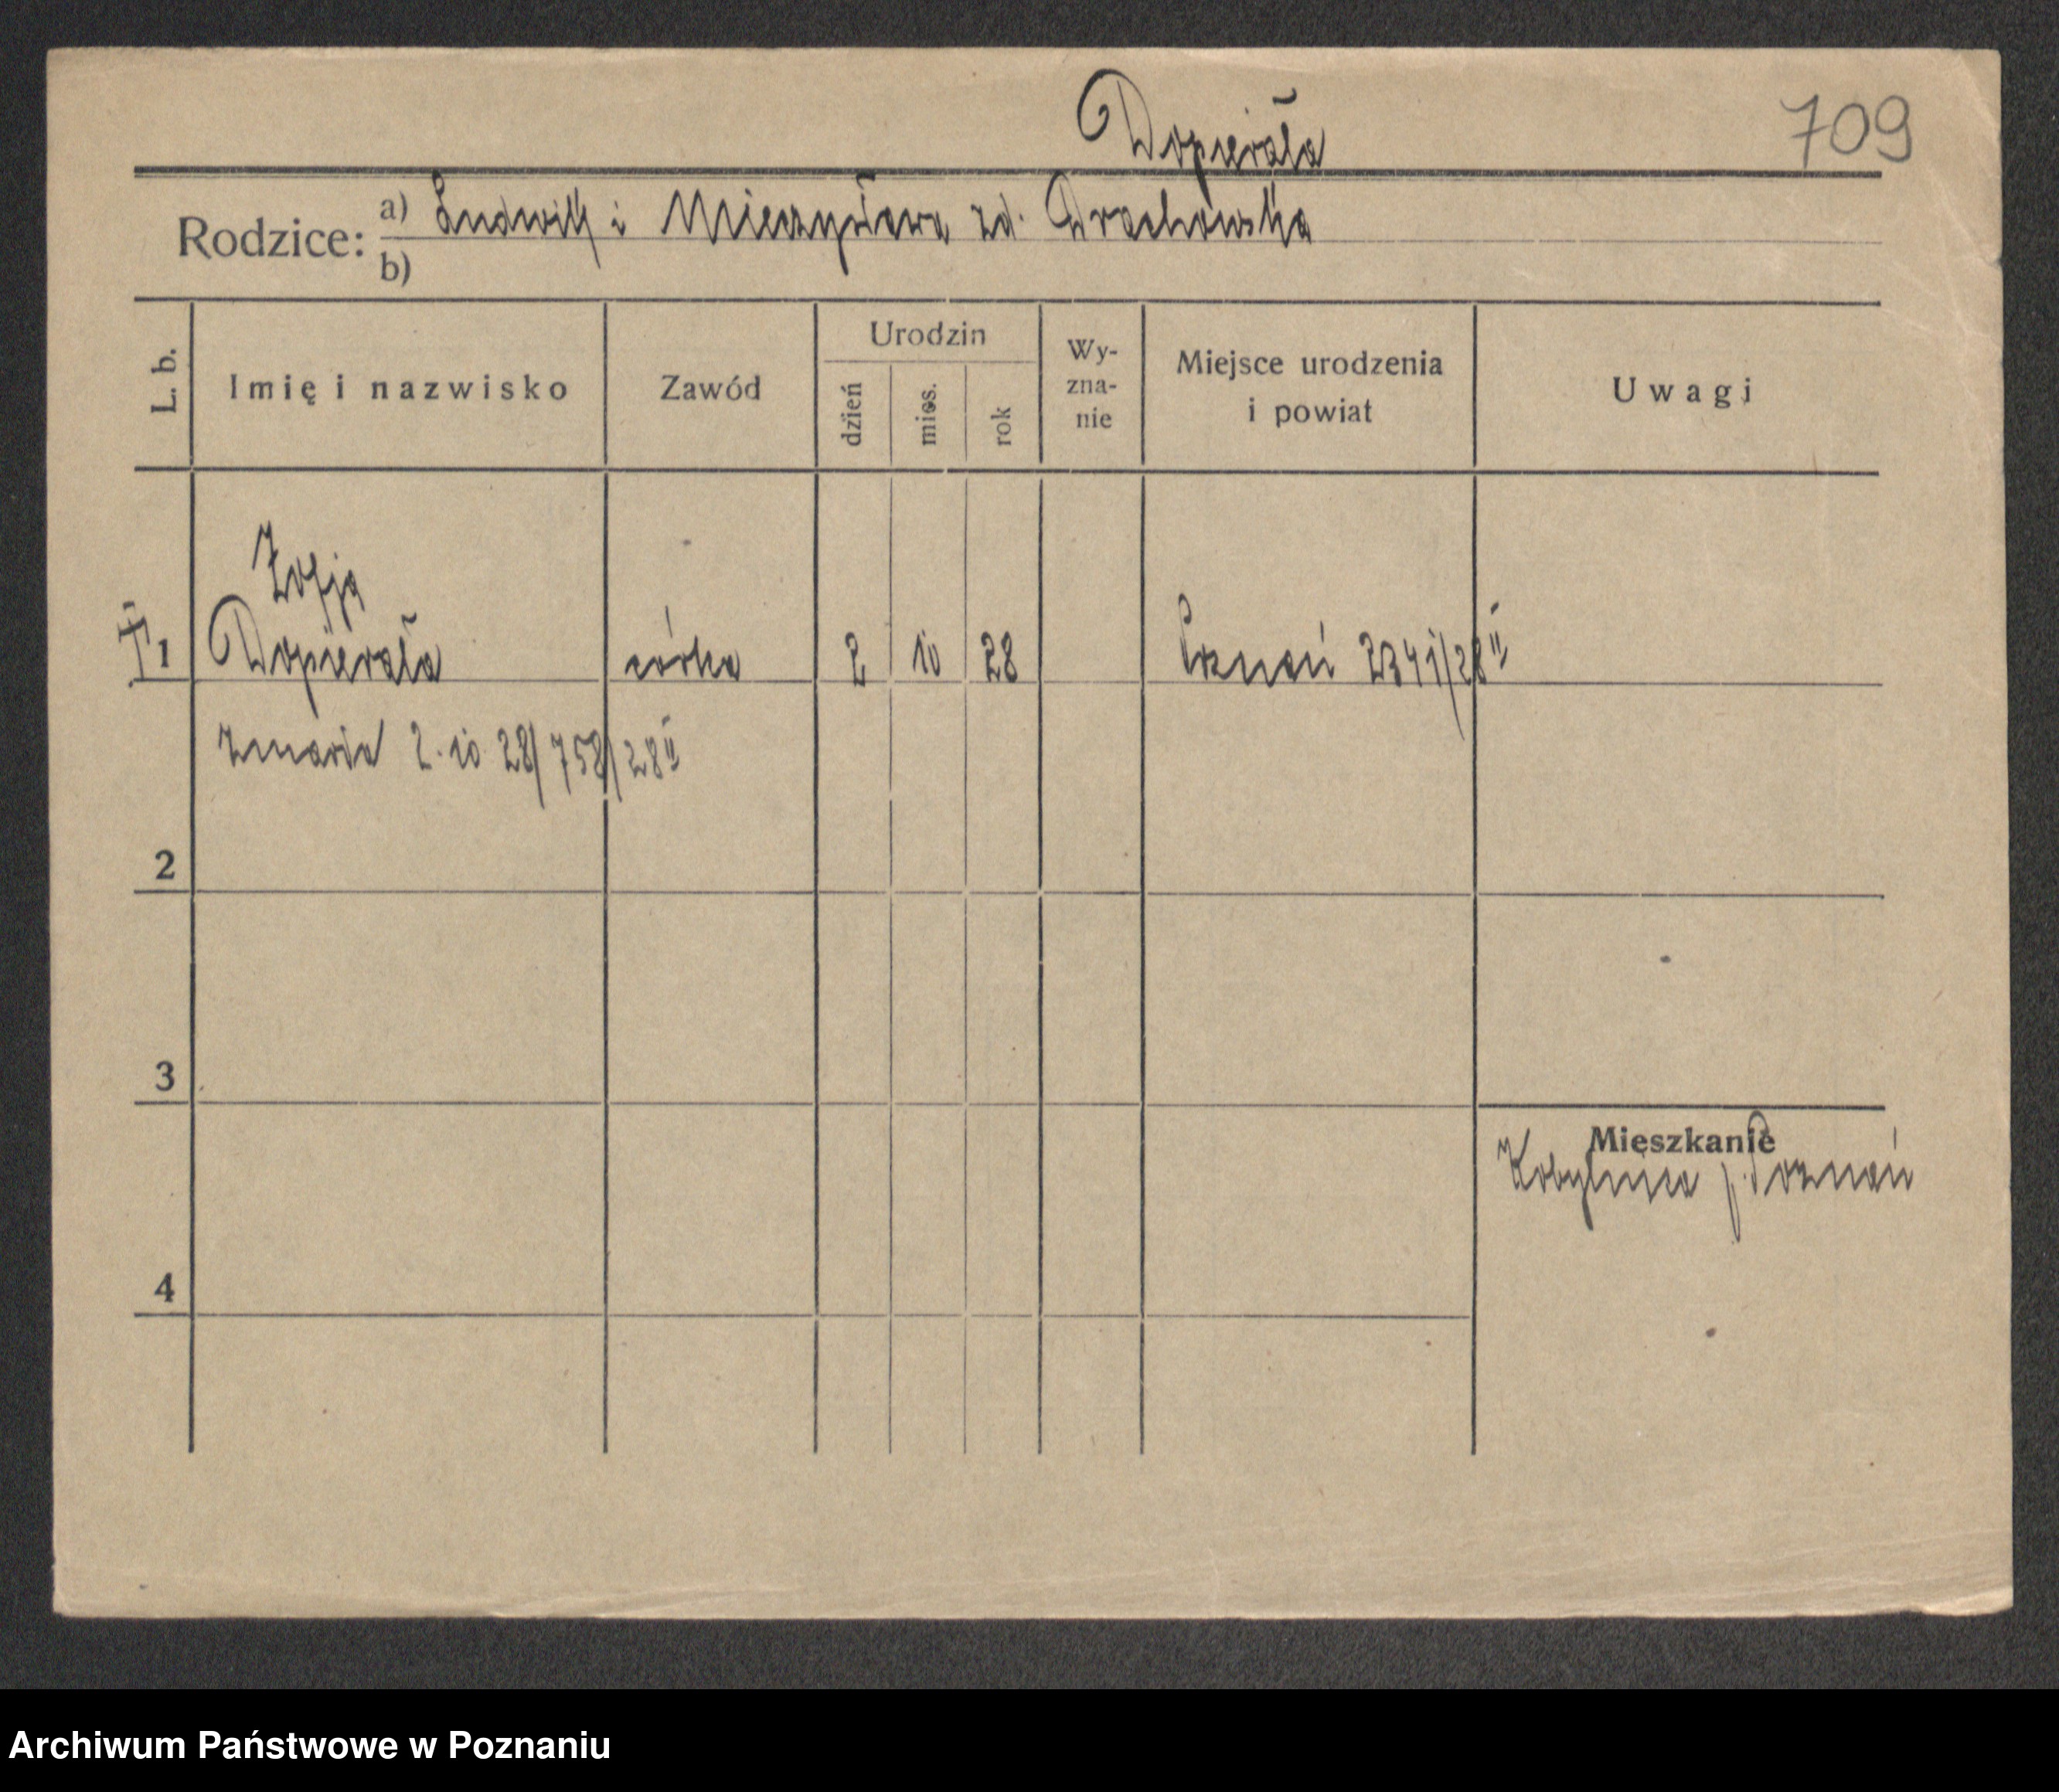 Dopierała
709
Rodzice: a) Ludwik i Mieczysława zd. Drachowska
b)
L. b. Imię i nazwisko Zawód Urodzin dzień mies. rok Wy-zna-nie Miejsce urodzenia i powiat Uwagi
Zofja
1 Dopierała córka 2 10 28 Poznań 2341/28 II
zmarła 2. 10 28/758/28 II
2
3
Mieszkanie
Kobylnica p. Poznań
4
Archiwum Państwowe w Poznaniu